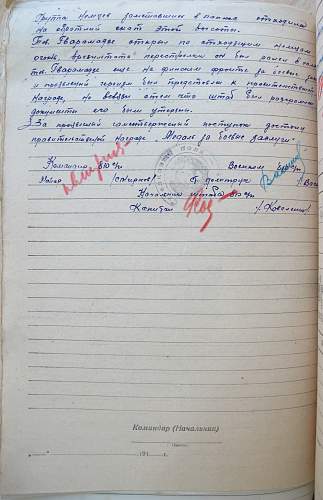 Группа немцев заметавшись в панике отходила
на обратный скат этой высоты.
Тов. Гварамадзе открыл по отходящим немцам
огонь, в результате перестрелки он был ранен в
тов. Гварамадзе еще на финском фронте за боевые
и проявленный героизм был представлен к правительственной
награде, но в связи с тем что штаб был разгромлен
документы его были утеряны.
За проявленный самоотверженный поступок достоин
правительственной награде „Медаль за боевые заслуги".
Командир 810 с/п Военком 810 с/п
Майор /Смирнов/ ст. политрук
Начальник штаба 810 с/п
Капитан /Коваленко/
Командир (Начальник)
194 г.